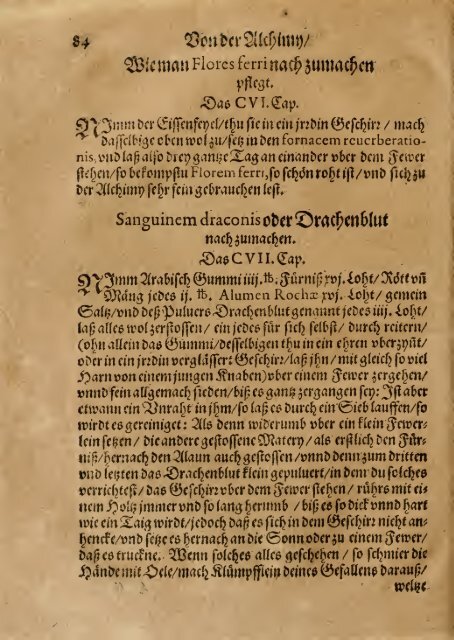 84 Von der Alchimy/
Wie man Flores ferri nach zumachen
pflegt.
Das CVI. Cap.
NImm der Eissenfeyel/thu sie in ein jrdin Geschirr / mach
dasselbige oben wol zu/setz in den fornacem reuerberatio-
nis, vnd laß also drey gantze Tag an einander vber dem Fewer
stehen/so bekompstu Florem ferri, so schön roht ist/vnd sich zu
der Alchimy sehr fein gebrauchen lest.
Sanguinem draconis oder Drachenblut
nach zumachen.
Das CVII. Cap.
NImm Arabisch Gummi iiij. ℔. Fürniß xvj. Loht/ Rött vñ
Mäng jedes ij. ℔. Alumen Rochæ xvj. Loht/ gemein
Saltz/vnd deß Puluers Drachenblut genannt jedes iiij. Loht/
laß alles wol zerstossen/ ein jedes für sich selbst/ durch reitern/
(ohn allein das Gummi/desselbigen thu in ein ehren vberzynt/
oder in ein jrdin verglässert Geschirr/laß jhn/ mit gleich so viel
Harn von einem jungen Knaben) vber einem Fewer zergehen/
vnnd fein allgemach sieden/biß es gantz zergangen sey: Ist aber
etwann ein Vnraht in jhm/so laß es durch ein Sieb lauffen/so
wirdt es gereiniget: Als denn widerumb vber ein klein Fewer-
lein setzen / die andere gestossene Matery/ als erstlich den Für-
niß/hernach den Alaun auch gestossen/vnnd denn zum dritten
vnd letzten das Drachenblut klein gepuluert/in dem du solches
verrichtest/ das Geschirr vber dem Fewer stehen / rührs mit ei-
nem Holtz jmmer vnd so lang herumb / biß es so dick vnnd hart
wie ein Taig wirdt/jedoch daß es sich in dem Geschirr nicht an-
hencke/vnd setze es hernach an die Sonn oder zu einem Fewer/
daß es truckne. Wenn solches alles geschehen / so schmier die
Hände mit Oele/mach Klümpfflein deines Gefallens darauß/
welze